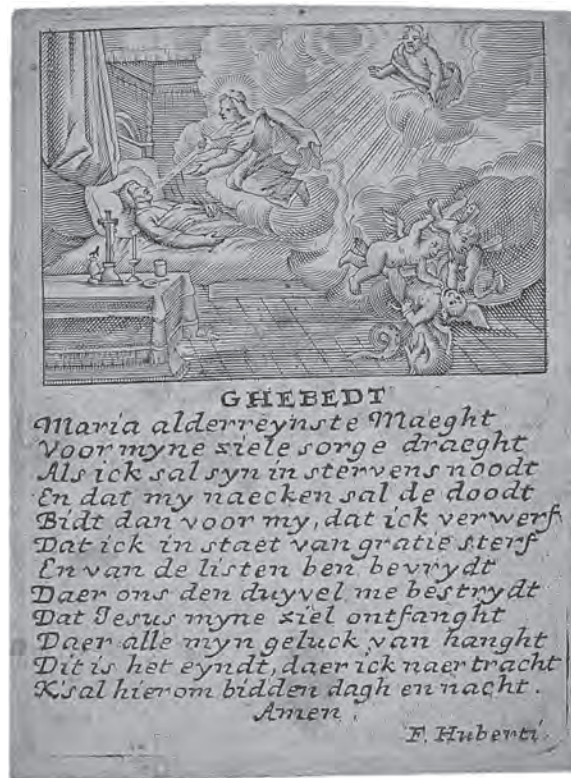 GHEBEDT
Maria alderreynste Maeght
Voor myne ziele sorge draeght
Als ick sal syn in stervens noodt
En dat my naecken sal de doodt
Bidt dan voor my, dat ick verwerf
Dat ick in staet van gratie sterf
En van de listen ben bevrydt
Daer ons den duyvel me bestrydt
Dat Jesus myne ziel ontfanght
Daer alle myn geluck van hanght
Dit is het eyndt, daer ick naer tracht
K'sal hierom bidden dagh en nacht.
Amen.
F. Huberti.